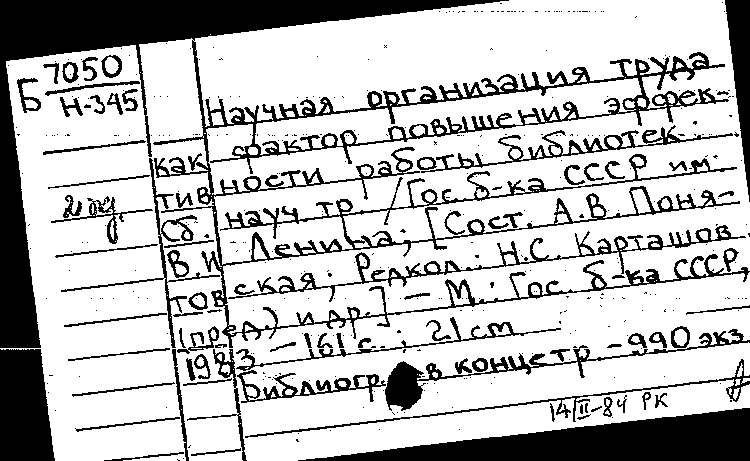 Б 7050
Н-345
Научная организация труда
как фактор повышения эффек-
тивности работы библиотек:
Сб. науч. тр. / Гос. б-ка СССР им.
В.И Ленина; [Сост. А.В. Поня-
товская; Редкол.: Н.С. Карташов
(пред.) и др.] – М.: Гос. б-ка СССР,
1983. – 161 с.; 21 cm
Библиогр. в конце стр – 990 экз
14/II-84 РК